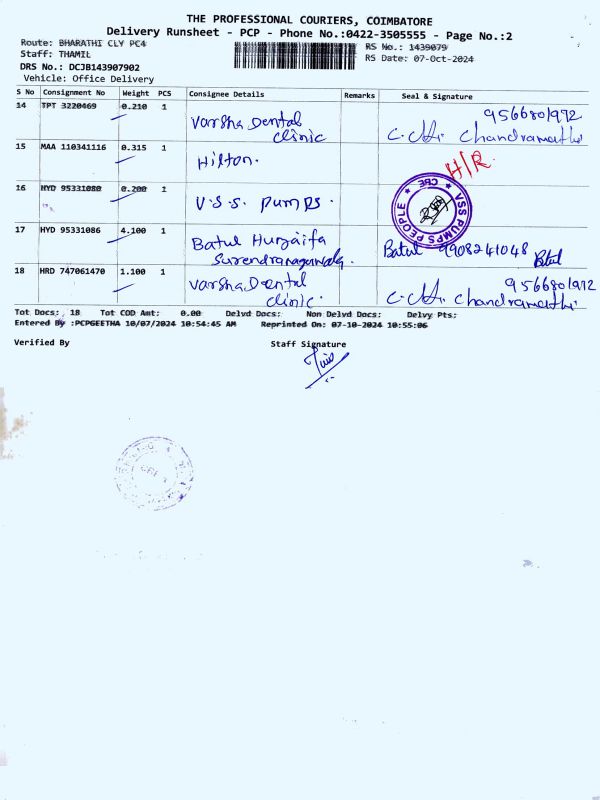 THE PROFESSIONAL COURIERS, COIMBATORE
Delivery Runsheet - PCP - Phone No.:0422-3505555 - Page No.:2
Route: BHARATHI CLY PC4
RS No.: 1439079
Staff: THAMIL
RS Date: 07-Oct-2024
DRS No.: DCJB143907902
Vehicle: Office Delivery
S No Consignment No Weight PCS Consignee Details Remarks Seal & Signature
14 TPT 3220469 0.210 1 Varsha Dental clinic 9566801972 Chandramathi
15 MAA 110341116 0.315 1 Hilton. H/R
16 HYD 95331080 0.200 1 V.S.S. Pumps. VSS PUMPS PEOPLE CBE
17 HYD 95331086 4.100 1 Batul Huzaifa Batul 9908241048 Batul
18 HRD 747061470 1.100 1 Varsha Dental clinic. 9566801972 Chandramathi
Tot Docs: 18 Tot COD Amt: 0.00 Delvd Docs: Non Delvd Docs: Delvy Pts:
Entered By :PCPGEETHA 10/07/2024 10:54:45 AM Reprinted On: 07-10-2024 10:55:06
Verified By Staff Signature